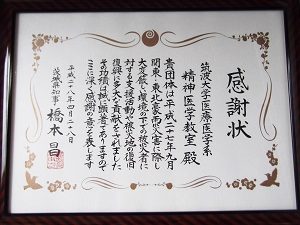 感謝状
筑波大学医療医学系
精神医学教室 殿
貴団体は平成二十七年九月
関東・東北豪雨災害に際し
大変厳しい環境の下での被災者に
対する支援活動や被災地の復旧
復興に多大な貢献をされました
その功績は誠に顕著でありますので
ここに深く感謝の意を表します
平成二十八年四月二十八日
茨城県知事 橋本 昌